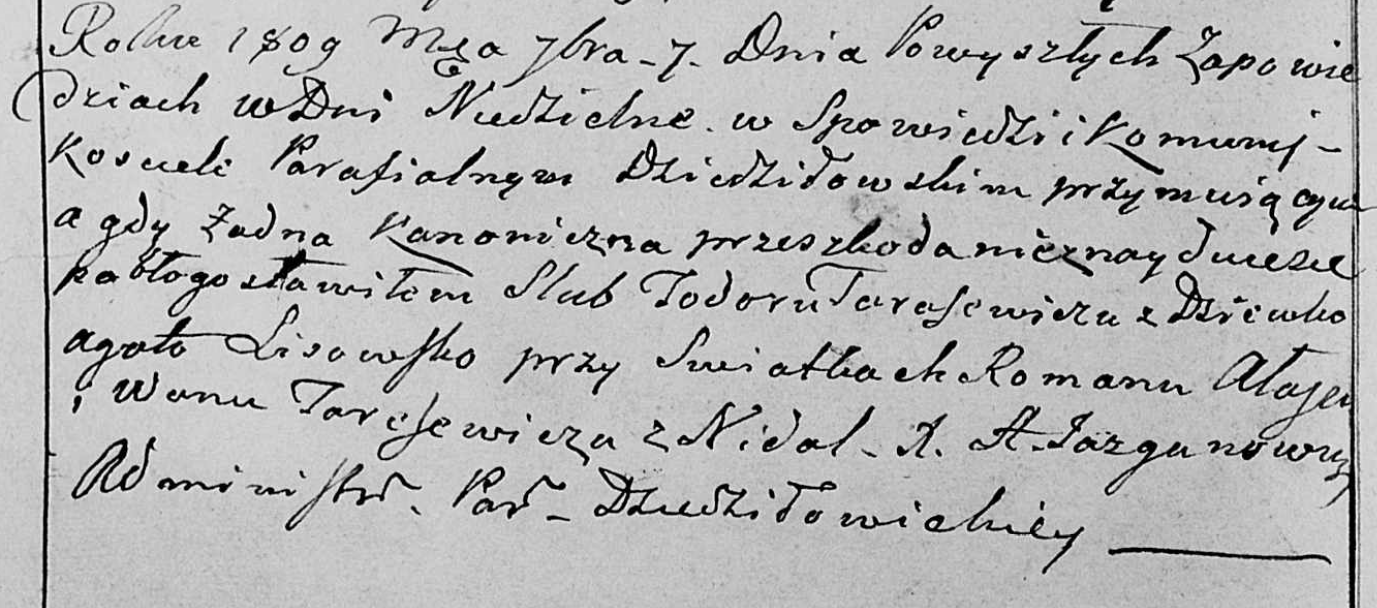 Roku 1809 Mca 7bra - 7. Dnia Powyszłych Zapowie
dziach w Dni Niedzielne. w Spowiedzi i Komunij -
Kosciele Parafialnym Dziedziłowskim przymusiącym
a gdy żadna Kanoniczna przeszkoda nieznayduiesie
pabłogosławiłem Slub Todoru Tarasewiczu z Dziewko
agato Lisowsko przy Swiatkach Romanu
i Wanu Tarasewiczu z Nidal - X. A. Jazgunowicz
Administr. Par - Dziedziłowickiey